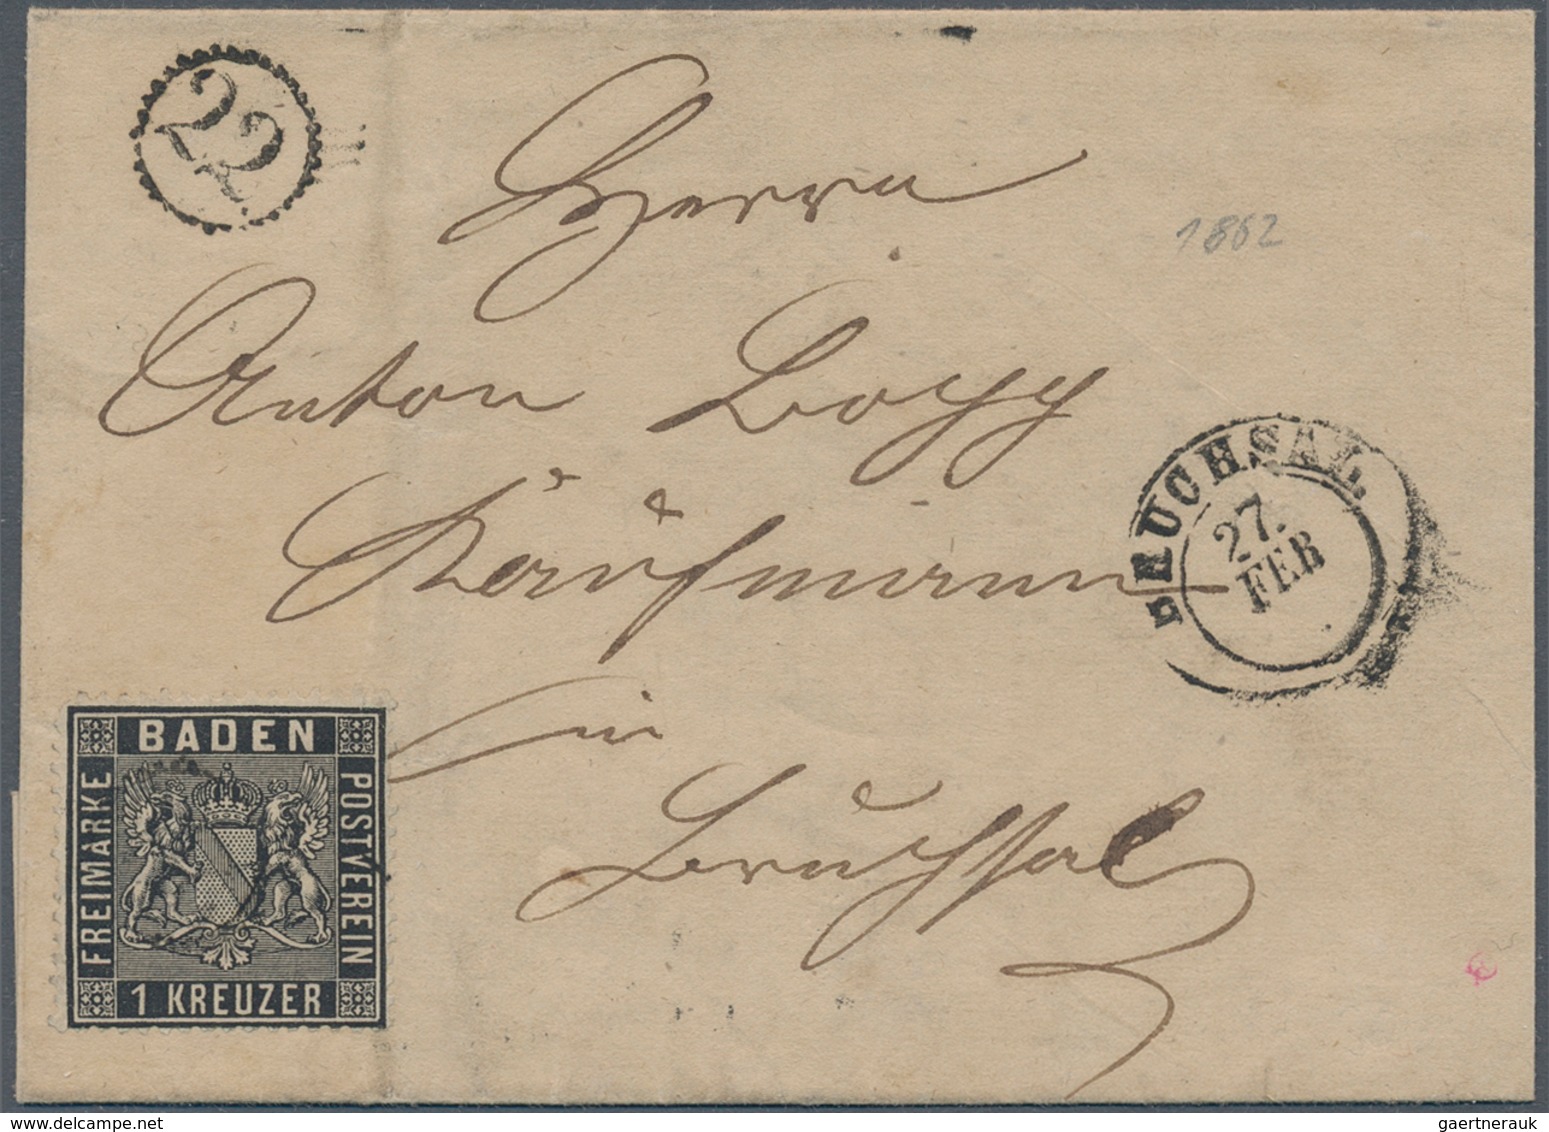 22
Herrn
1862
Anton Bopp
Kaufmann
BRUCHSAL
27.
FEB
in
Bruchsal
BADEN
FREIMARKE
POSTVEREIN
1 KREUZER
gaertnerauk @ delcampe.net